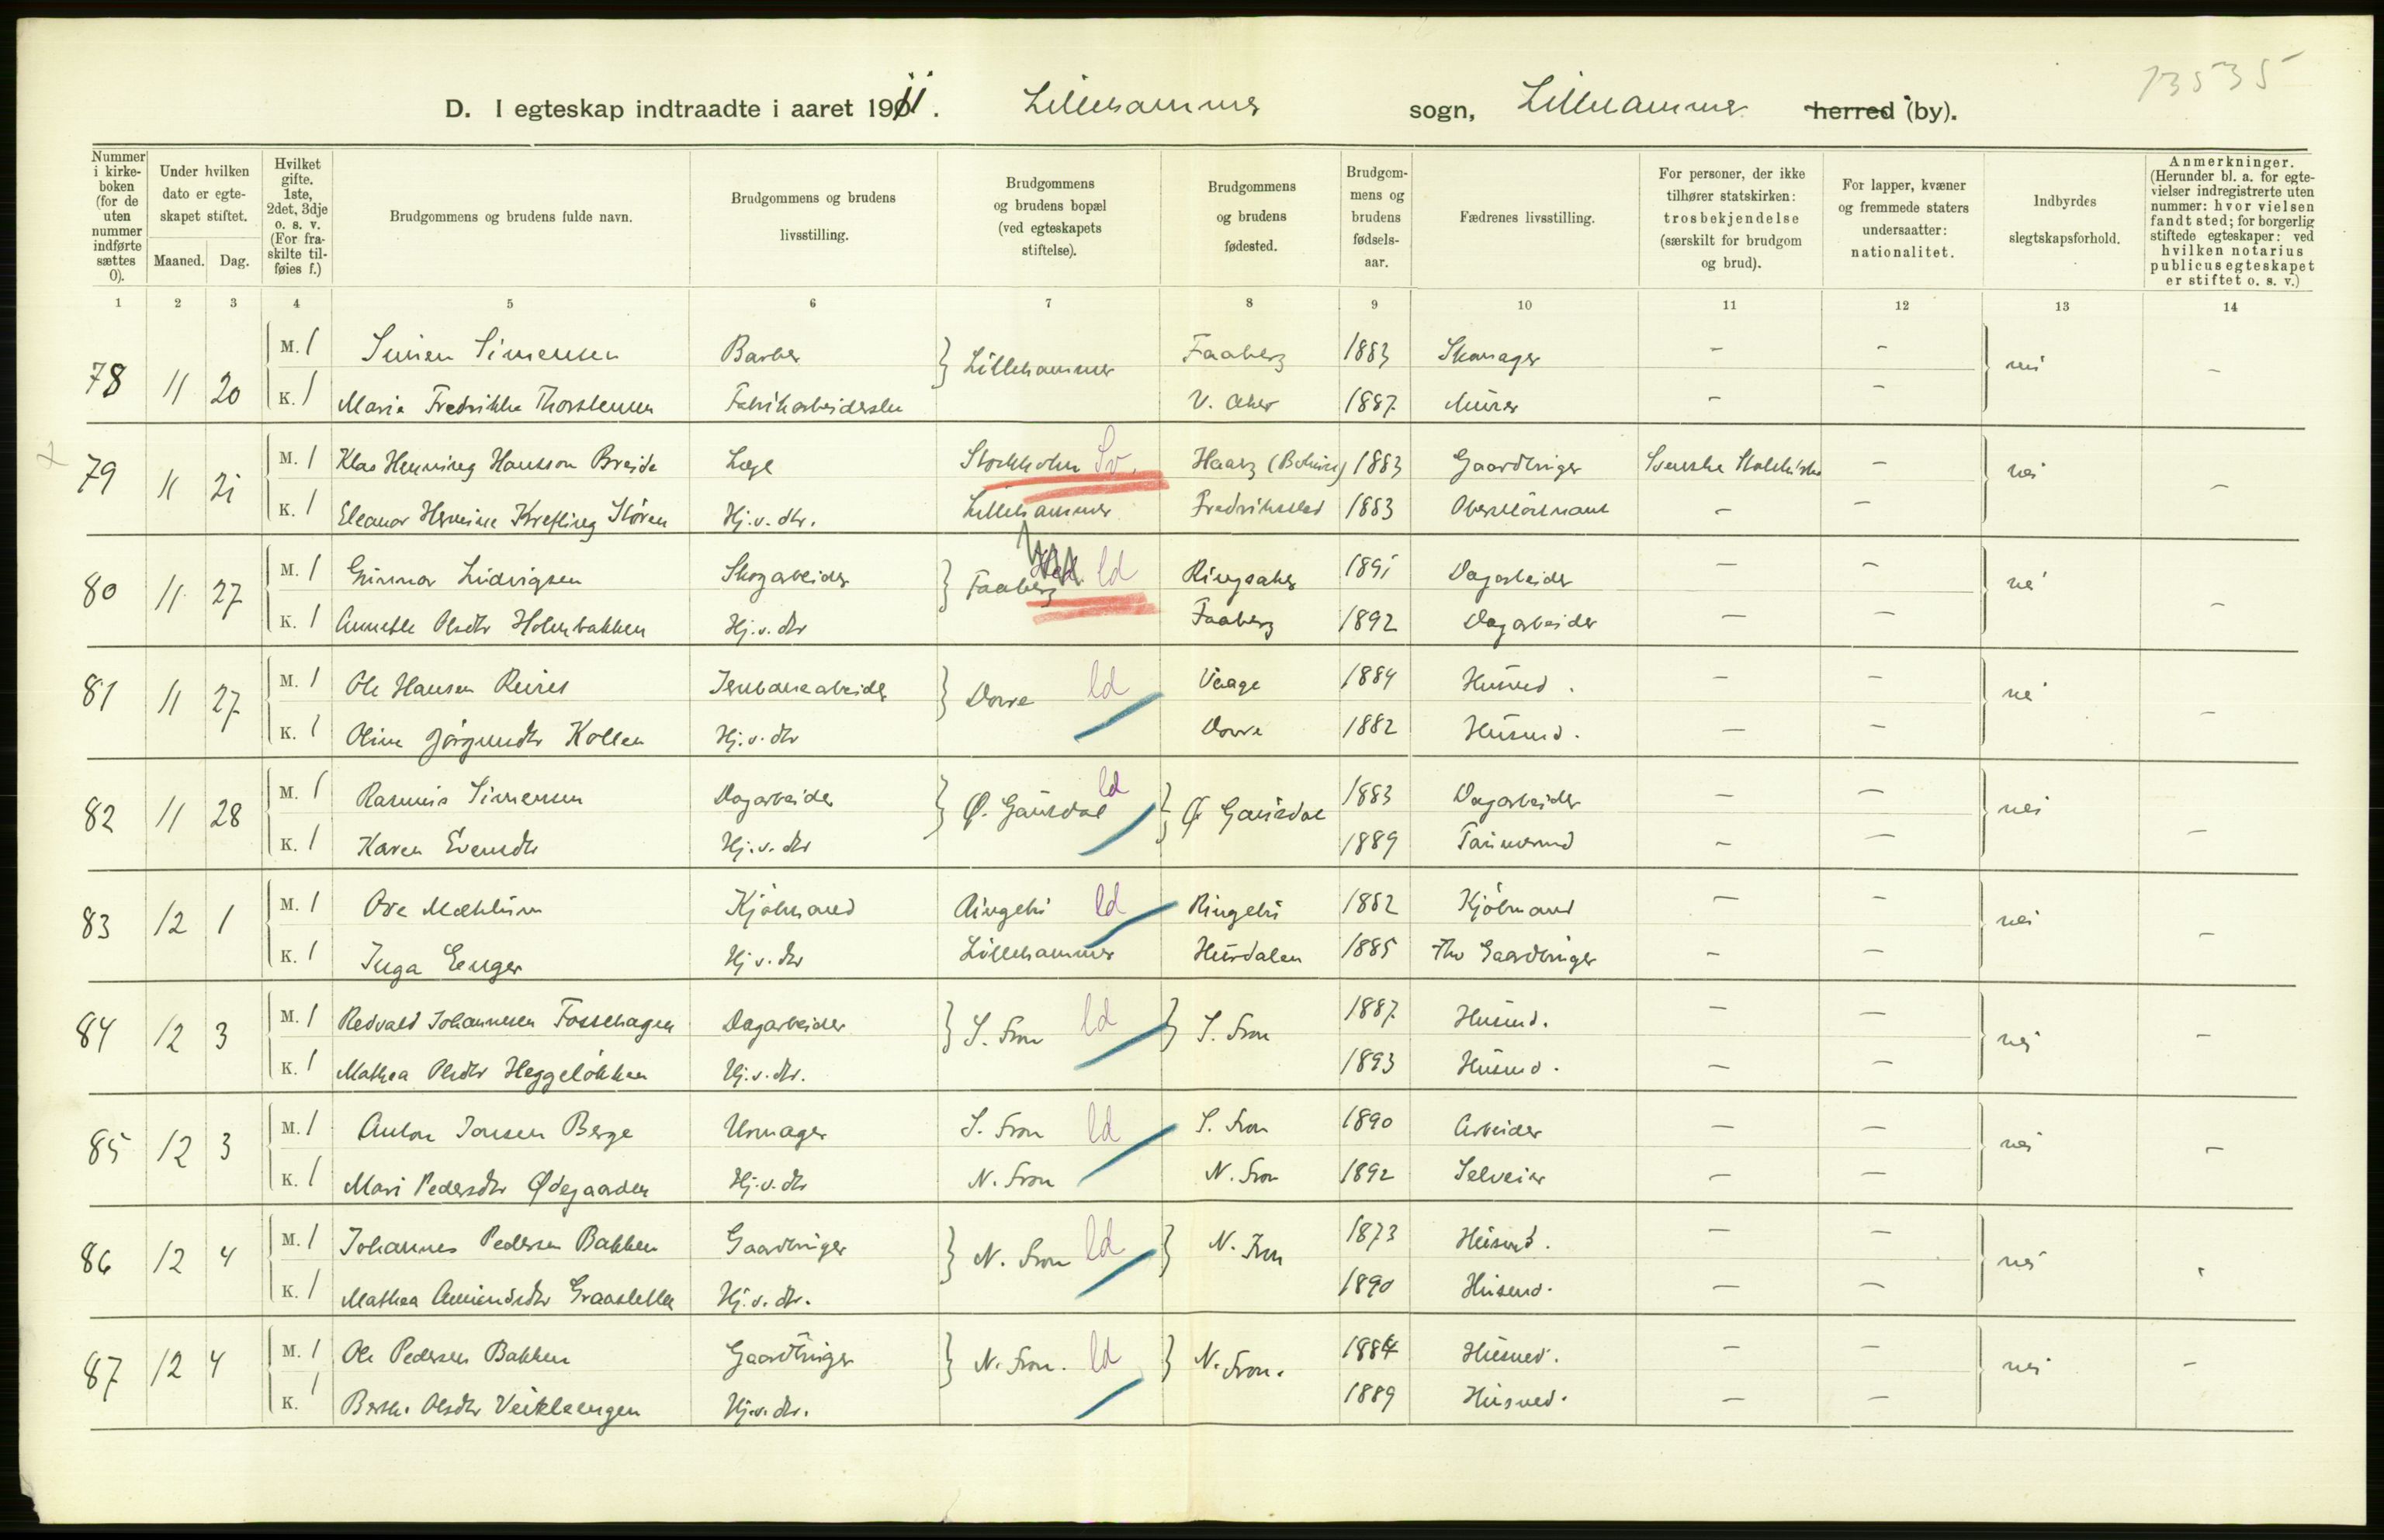 13535
D. I egteskap indtraadte i aaret 1911. Lillehammer sogn, Lillehammer herred (by).
Nummer i kirkeboken (for de uten nummer indførte sættes 0).
Under hvilken dato er egteskapet stiftet.
Maaned. Dag.
Hvilket gifte. 1ste, 2det, 3dje o. s. v. (For fraskilte tilføies f.)
Brudgommens og brudens fulde navn.
Brudgommens og brudens livsstilling.
Brudgommens og brudens bopæl (ved egteskapets stiftelse).
Brudgommens og brudens fødested.
Brudgommens og brudens fødselsaar.
Fædrenes livsstilling.
For personer, der ikke tilhører statskirken: trosbekjendelse (særskilt for brudgom og brud).
For lapper, kvæner og fremmede staters undersaatter: nationalitet.
Indbyrdes slegtskapsforhold.
Anmerkninger. (Herunder bl. a. for egtevielser indregistrerte uten nummer: hvor vielsen fandt sted; for borgerlig stiftede egteskaper: ved hvilken notarius publicus egteskapet er stiftet o. s. v.)
1 2 3 4 5 6 7 8 9 10 11 12 13 14
78 11 20 M. 1 Simen Simensen Barber Lillehammer Faaberg 1883 Skomager - - nei -
K. 1 Marie Fredrikke Thorstensen Fabrikarbeiderske V. Aker 1887 Murer - -
79 11 21 M. 1 Klas Henning Hansson Breide Læge Stockholm Sv. 1883 Gaardbruger Svenske Statskirke - nei -
K. 1 Eleanor Hermine Krefting Støren Hj.v.dtr. Lillehammer Fredrikstad 1883 Oberstløitnant - -
80 11 27 M. 1 Gunnar Ludvigsen Skogarbeider Faaberg ld Ringsaker 1891 Dagarbeider - - nei -
K. 1 Annette Olsdtr Holmbakken Hj.v.dtr Faaberg 1892 Dagarbeider - -
81 11 27 M. 1 Ole Hansen Jernbanearbeider Dovre ld Vaage 1884 Husmd. - - nei -
K. 1 Oline Jörgensdtr Kollen Hj.v.dtr Dovre 1882 Husmd. - -
82 11 28 M. 1 Rasmus Simensen Dagarbeider Ø. Gausdal ld Ø Gausdal 1883 Dagarbeider - - nei -
K. 1 Karen Evensdtr Hj.v.dtr 1889 Tømmermd - -
83 12 1 M. 1 Ove Mæhlum Kjöbmand Ringebu ld Ringebu 1882 Kjöbmand - - nei -
K. 1 Inga Eenger Hj v. dtr Lillehammer Hurdalen 1885 Fhv Gaardbruger - -
84 12 3 M. 1 Redvald Johannesen Fossehagen Dagarbeider S. Fron ld S. Fron 1887 Husmd. - - nei -
K. 1 Mathea Olsdtr Heggelökken Hj.v.dtr. 1893 Husmd. - -
85 12 3 M. 1 Anton Jonsen Berge Urmager S. Fron ld S. Fron 1890 Arbeider - - nei -
K. 1 Mari Pedersdtr Ødegaarden Hj.v.dtr N. Fron N. Fron 1892 Selveier - -
86 12 4 M. 1 Johannes Pedersen Bakken Gaardbruger N. Fron ld N. Fron 1873 Husmd. - - nei
K. 1 Mathea Amundsdtr Graasletten Hj.v.dtr. 1890 Husmd. - -
87 12 4 M. 1 Ole Pedersen Bakken Gaardbruger N. Fron. ld N. Fron. 1884 Husmd. - - nei -
K. 1 Berthe Olsdtr Veikleengen Hj.v.dtr. 1889 Husmd. - -